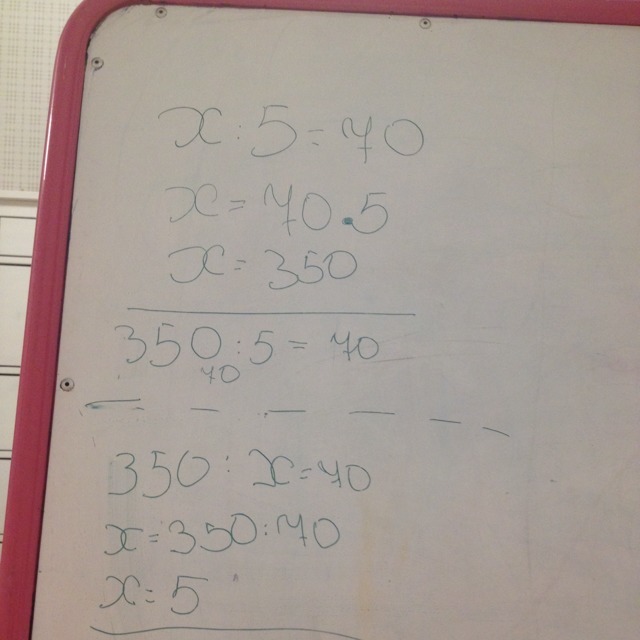 x : 5 = 70
x = 70 · 5
x = 350
350 : 5 = 70
70
350 : x = 70
x = 350 : 70
x = 5